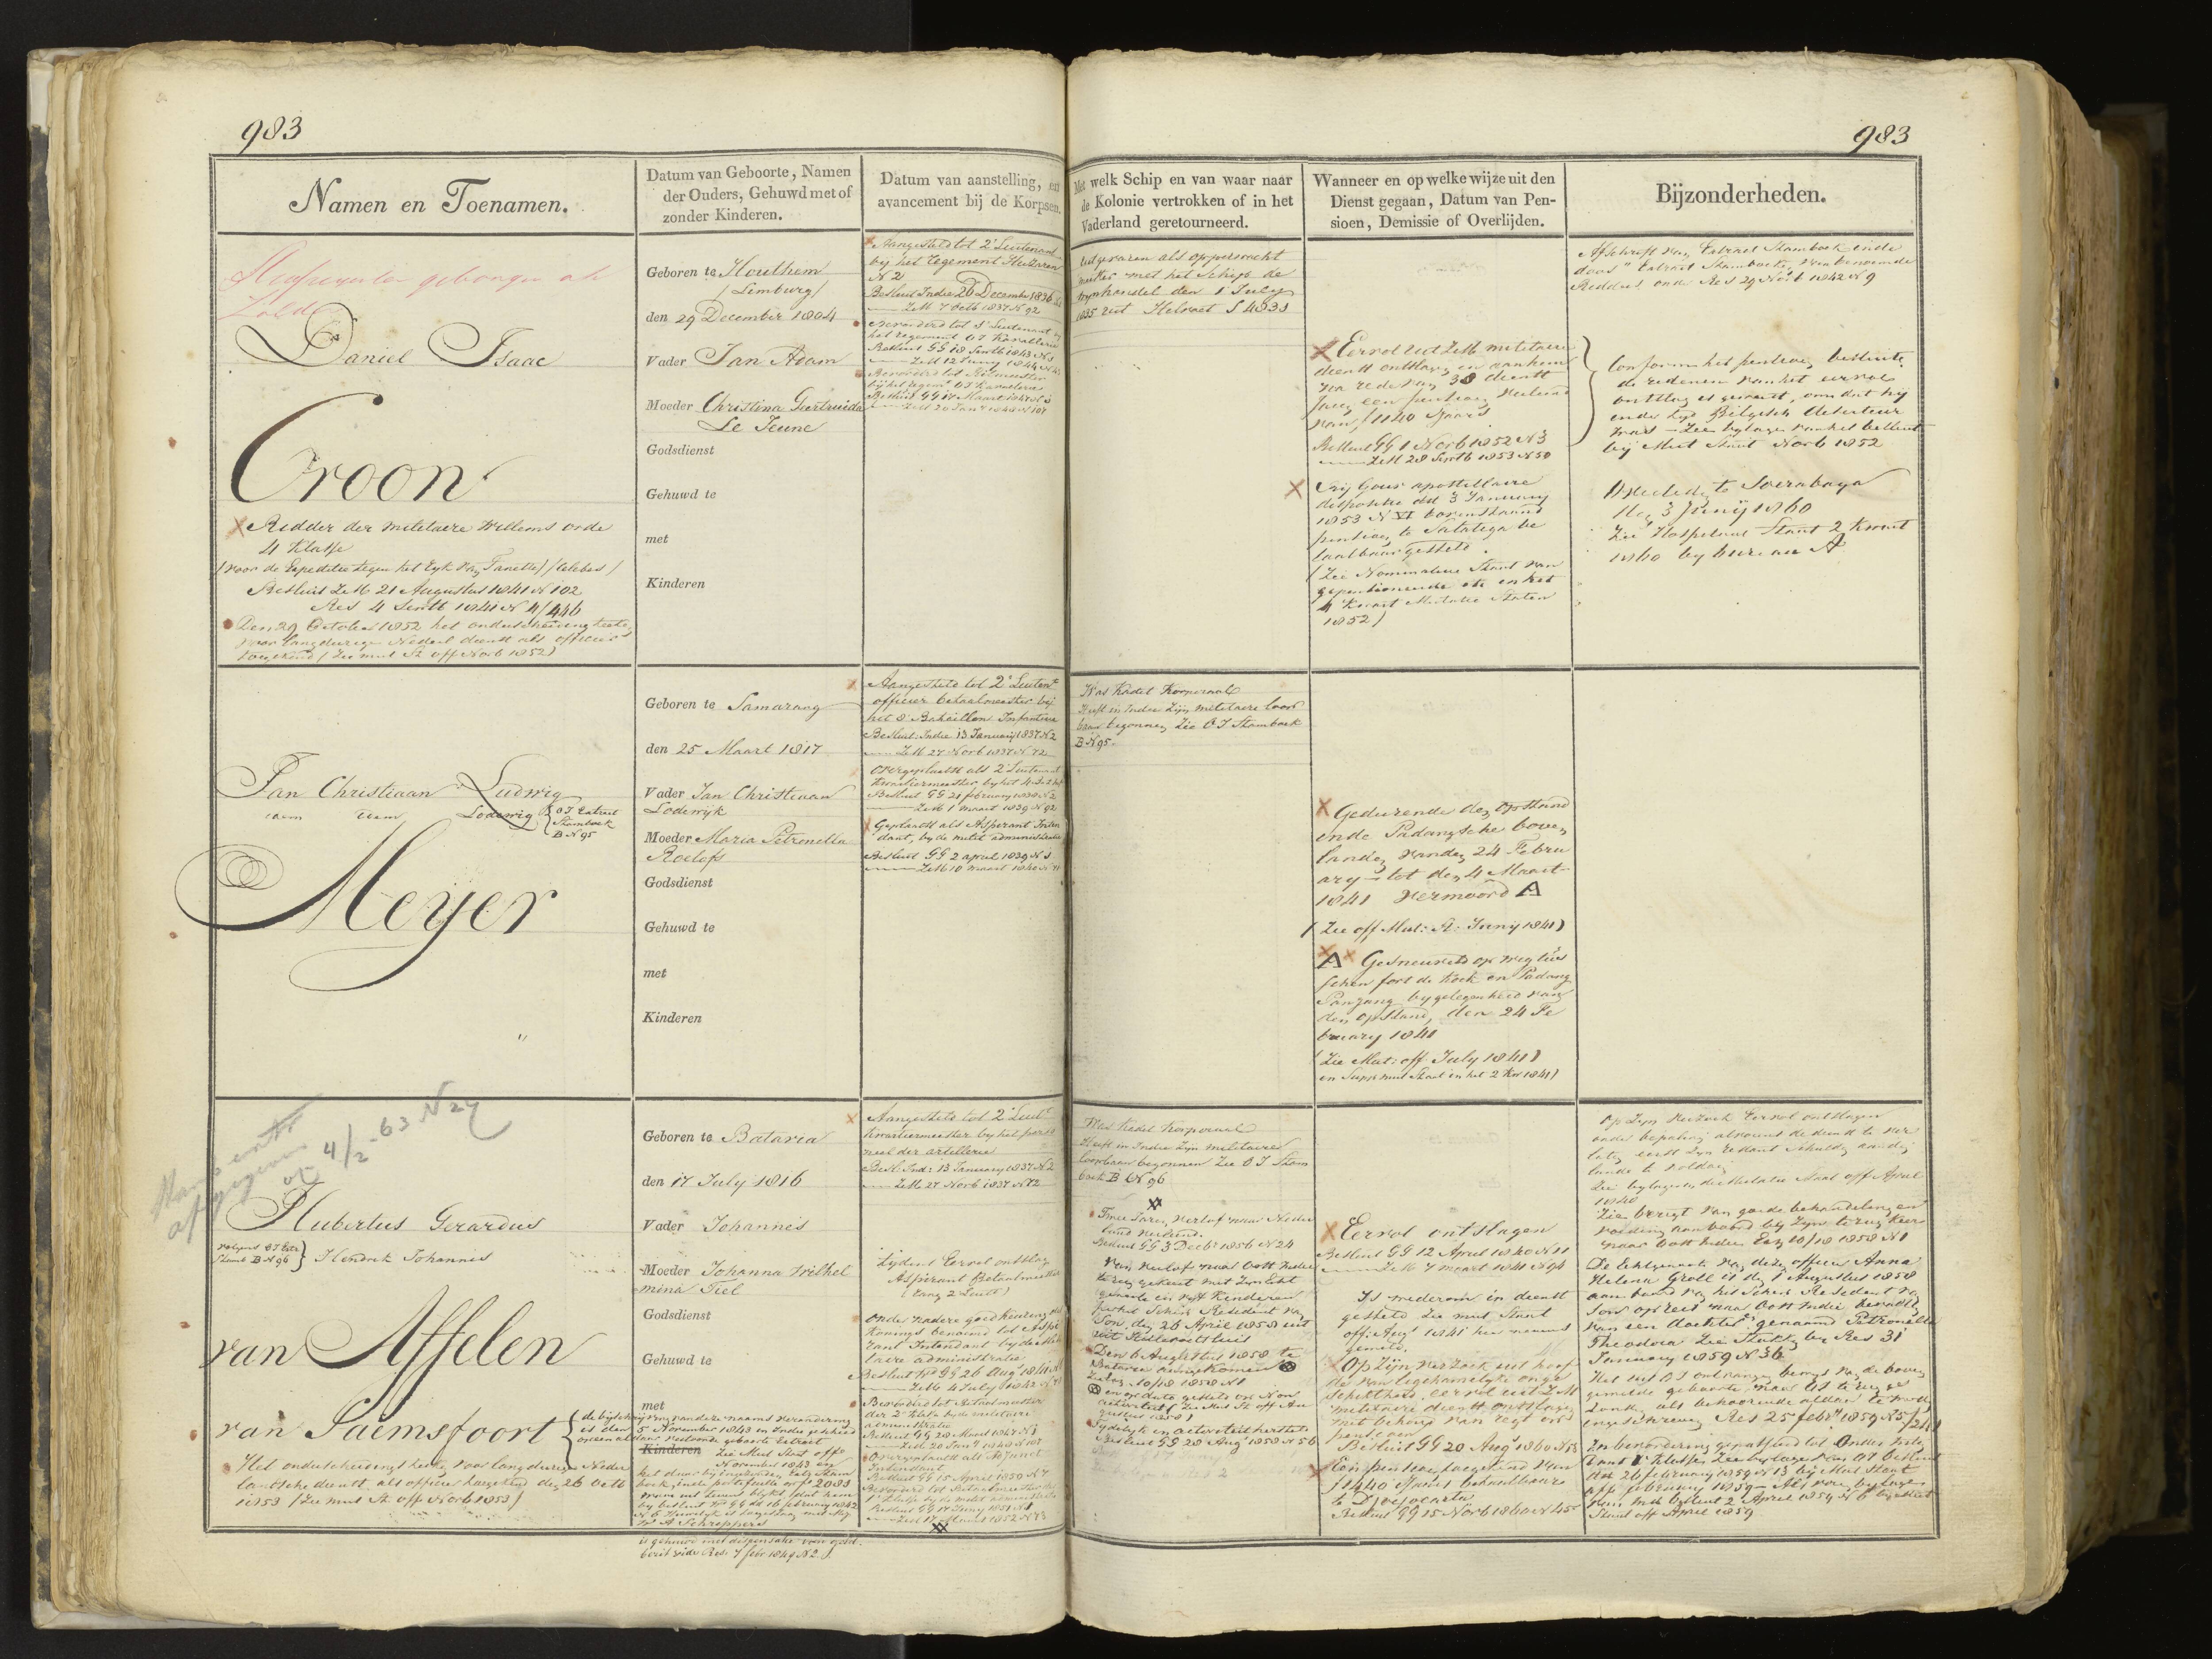 983
983
Namen en Toenamen.
Datum van Geboorte, Namen
der Ouders, Gehuwd met of
zonder Kinderen.
Datum van aanstelling, en
avancement bij de Korpsen.
Met welk Schip en van waar naar
de Kolonie vertrokken of in het
Vaderland geretourneerd.
Wanneer en op welke wijze uit den
Dienst gegaan, Datum van Pen-
sioen, Demissie of Overlijden.
Bijzonderheden.
Daniel Isaac
Croon
Ridder der militaire Willems orde
4 Klasse
(voor de Expeditie tegen het Ryk van Tanette) (Celebes)
Besluit ZM 21 Augustus 1841 N 102
Res 4 Septb 1841 N 4/446
Den 29 October 1852 het onderscheidings teeken
voor langdurigen Nederl dienst als officier
toegekend (Zie mut St off Novb 1852)
Geboren te Houthem
(Limburg)
den 29 December 1804
Vader Jan Adam
Moeder Christina Geertruida
Le Jeune
Godsdienst
Gehuwd te
met
Kinderen
Aangesteld tot 2e Luitenant
by het regement Huzaren
N 2
Besluit Indie 26 December 1836
ZM 7 Octb 1837 N 92
Bevorderd tot 1e Luitenant by
het regement OI Kavallerie
Besluit GG 18 Septb 1843 N 1
ZM 12 Juny 1844
Bevorderd tot Ritmeester
by het regemt OI Kavallerie
Besluit GG 14 Maart 1847
Uitgevaren als opperwacht
met het schip de
den 1 July
1835 uit Helvoet
Eervol uit ZM militaire
dienst ontslagen en aan hem
na rede van 38 dienst
jaren een pensioen verleend
van f 1140 Sjaars
Besluit GG 1 Novb 1852 N 3
ZM 28 Septb 1853 N 50
By Gouv apostillaire
dispositie dd 3 January
1853 N VI bovenstaand
pensioen te Salatiga be
taalbaar gesteld.
(Zie Nominative Staat van
gepensioneerde etc en het
4 Kwart Mutatie Staten
1852)
Afschrift van Extract Stamboek
Extract Stamboek van benoemde
Ridders, onde Res 29 Novb 1842 N 9
Conform het pensioen besluit
de redenen van het eervol
ontslag is geweest, om dat hij
Belgisch deserteur
was - Zie bylagen van het besluit
bij Mut Staat Novb 1852
Overleden te Soerabaya
den 3 Junij 1860
Zie Hospitaal Staat 2 Kwart
1860 by bureau A
Jan Christiaan Ludwig
idem idem Lodewig { OI Extract
Stamboek
B N 95
Meyer
Geboren te Samarang
den 25 Maart 1817
Vader Jan Christiaan
Lodewijk
Moeder Maria Petronella
Roelofs
Godsdienst
Gehuwd te
met
Kinderen
Aangesteld tot 2e Luitent
officier betaalmeester bij
het 8 Bataillon Infanterie
Besluit Indie 13 January 1837 N 2
ZM 27 Novb 1837 N 72
Overgeplaatst als 2e Luitenant
Kwartiermeester by het
Besluit GG 21 february 1838 N 2
ZM 1 maart 1839 N 92
Geplaatst als Aspirant Inten
dant, by de milit administratie
Besluit GG 2 april 1839 N 1
ZM 10 maart 1840 N 71
Was Kadet Korporaal
Heeft in Indie Zijn militaire loop
baan begonnen Zie OI Stamboek
B N 95.
Gedurende den opstand
in de Padangsche boven
landen van den 24 Febru
ary tot den 4 Maart
1841 vermoord A
(Zie off Mut: St: Juny 1841)
A Gesneuveld op weg tus
schen fort de Kock en Padang
Panjang by gelegenheid van
den opstand, den 24 Fe
bruary 1841
(Zie Mut: off July 1841)
en Supp mut Staat in het 2 Kw 1841)
afgegeven
4/2 - 63 N 24
Hubertus Gerardus
volgens OI Extr
Stamb B N 96 } Hendrik Johannis
van Affelen
van Saemsfoort { de bijschrijving van deze naams verandering
is den 5 November 1843 in Indie geschied
op een aldaar vertoonde geboorte Extract
Zie Mut Staat offr
November 1843
Het onderscheidings teeken voor langdurigen Neder
landsche dienst als officier toegekend den 26 Octb
1853 (Zie mut St off Novb 1853)
Geboren te Batavia
den 17 July 1816
Vader Johannis
Moeder Johanna Wilhel
mina Tiel
Godsdienst
Gehuwd te
met
Kinderen
by besluit GG dd 16 february 1842
A Schreppers
is gehuwd met dispensatie van
Res: 7 febr 1849 N 2.
Aangesteld tot 2e Luitt
Kwartiermeester by het perso
neel der artillerie
Besl: Ind: 13 January 1837 N 2
ZM 27 Novb 1837 N 72
tydens Eervol ontslag
Aspirant Betaalmeester
(rang 2 Luitt)
Onder nadere goedkeuring des
Konings benoemd tot Aspi
rant Intendant by de mili
taire administratie
Besluit GG 26 Aug 1841
ZM 4 July 1842
Bevorderd tot Betaalmeester
der 2e Klasse by de militaire
administratie
Besluit GG 28 Maart 1847 N 1
Overgeplaatst als Adjunct
Intendant
Besluit GG 15 April 1850 N 7
Bevorderd tot Betaalmeester
1e Klasse by de milit administratie
ZM 17 Maart 1852 N 73
Was Kadet Korporaal
Heeft in Indie Zijn militaire
loopbaan begonnen Zie OI Stam
boek B N 96
Twee Jaren verlof naar Neder
land verleend.
Besluit GG 3 Decbr 1856 N 24
Van verlof naar Oost Indie
terug gekeerd met Zyn Echt
genoote en vyf Kinderen
per het Schip Resident van
Son den 26 April 1858 uit
uit Hellevoetsluis
Den 6 Augustus 1858 te
Batavia aangekomen
10/18 1858 N 1
en op dato gesteld op Non
activiteit (Zie Mut St off Au
gustus 1858)
Tydelyk in activiteit hersteld
Besluit GG 28 Aug 1858 N 56
Eervol ontslagen
Besluit GG 12 April 1840 N 11
ZM 7 maart 1841 N 94
Is wederom in dienst
gesteld Zie mut Staat
off: Augt 1841 hier nevens
gemeld.
Op Zijn verzoek uit hoof
de van ligchamelyke onge
schiktheid, eervol uit ZM
militaire dienst ontslagen
met behoud van regt op
pensioen
Besluit GG 20 Augt 1860 N 53
Een pensioen toegekend van
f 1440 Sjaars betaalbaar
te Djocjocarta
Besluit GG 15 Novb 1860 N 45
Op Zyn verzoek Eervol ontslagen
onder bepaling alvorens de dienst te ver
laten eerst Zyn restant schuld aan den
lande te voldoen
Zie bylagen der Mutatie Staat off April
1840
Zie berigt van goede behandeling en
voeding aan boord by Zyn terug keer
naar Oost Indie 10/18 1858 N 1
De Echtgenoote van deze officier Anna
Helena Groll is den 1 Augustus 1858
aan boord van het schip Resident van
Son op reis naar Oost Indie bevallen
van een dochter genaamd Petronella
Theodora Zie Stukken by Res 31
January 1859 N 36
Het uit OI ontvangen bewys van de boven
gemelde geboorte naar OI terug ge
zonden, als behoorende aldaar te worden
ingeschreven Res 25 febr 1859 N 5/241
In bevordering gepasseerd tot Onder Inten
dant 1e Klasse, Zie bylagen van OI besluit
dd 26 february 1859 N 13 by Mut Staat
off february 1859
besluit 2 April 1859 N 6
Staat off April 1859